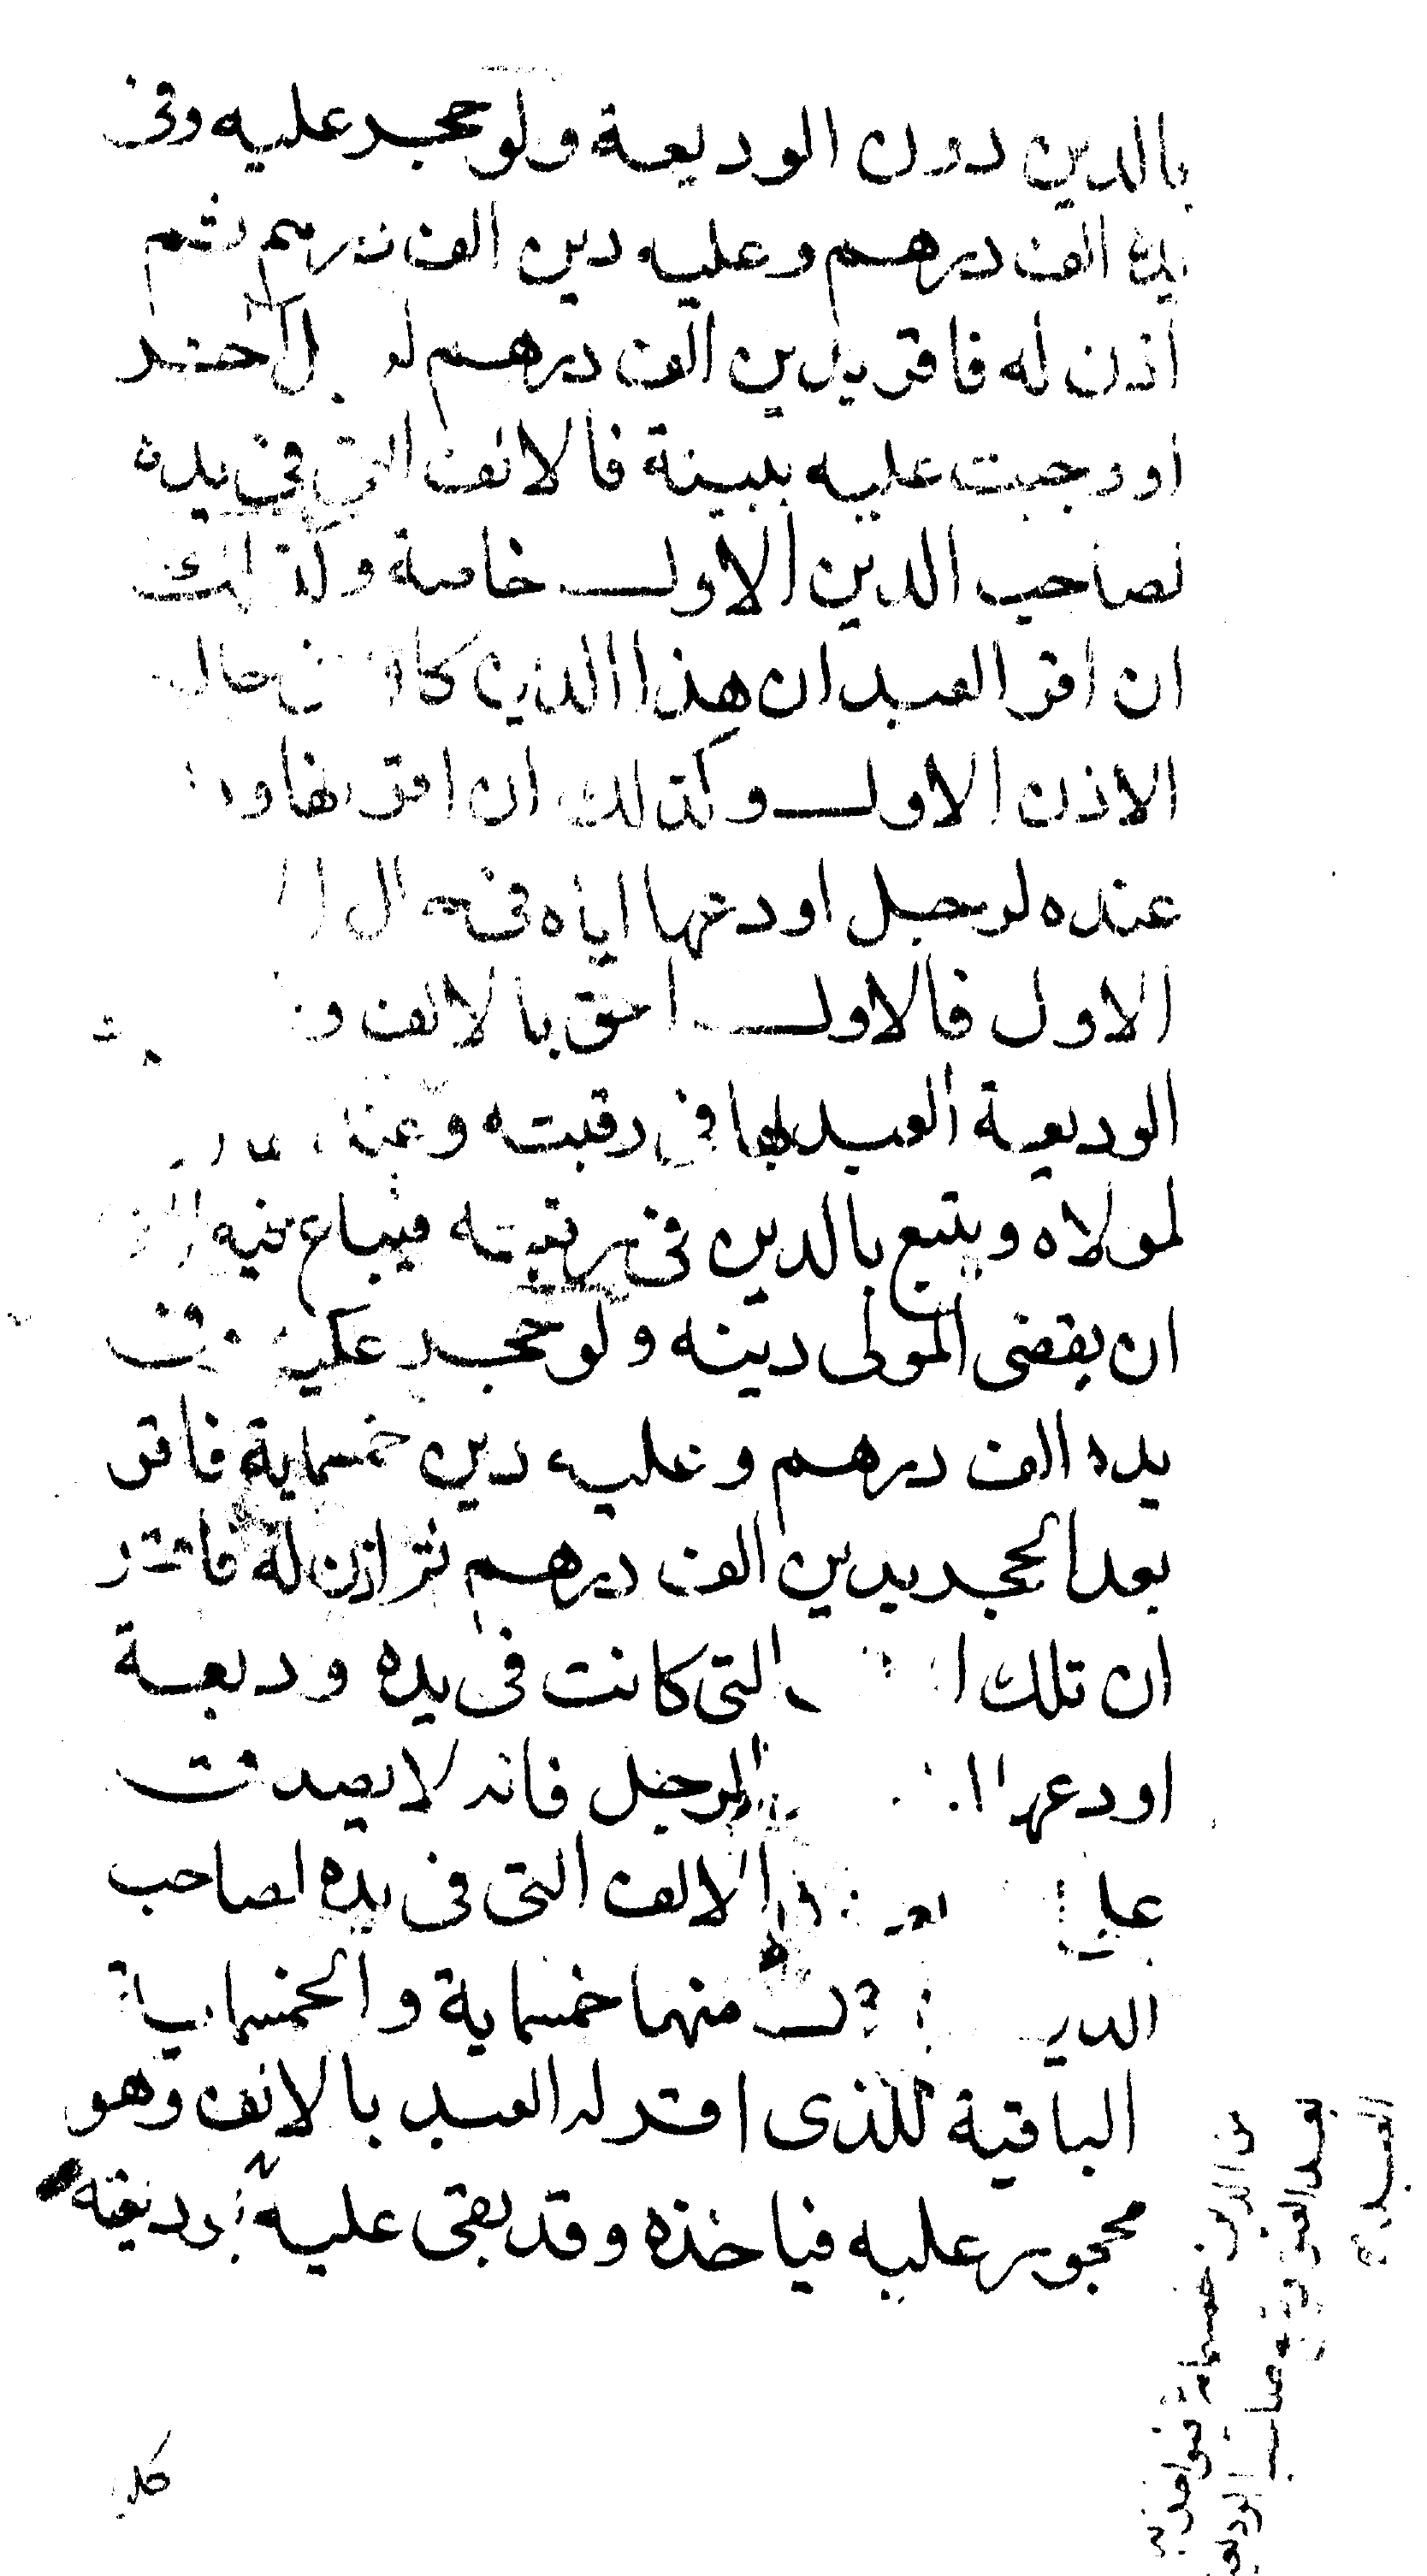 بالدين دون الوديعة ولو حجر عليه وفى
يده الف درهم وعليه دين الف درهم ثم
اذن له فاقر بدين الف درهم لرجل اخر
او وجبت عليه ببينة فالالف التي في يده
لصاحب الدين الاول خاصة وكذلك
ان اقر العبد ان هذا الدين كان في حال
الاذن الاول وكذلك ان اقر بها ود
عنده لرجل اودعها اياه في حال
الاول فالاول احق بالالف و
الوديعة العبد بها في رقبته وعند
لمولاه ويتبع بالدين في رقبته فيباع فيه
ان يقضى المولى دينه ولو حجر عليه وفى
يده الف درهم وعليه دين خمسماية فاقر
بعد الحجر بدين الف درهم ثم اذن له فاقر
ان تلك التى كانت فى يده وديعة
اودعها لرجل فانه لا يصدق
على الالف التى فى يده لصاحب
الدين منها خمسماية والخمسماية
الباقية للذى اقر له العبد بالالف وهو
محجور عليه فياخذه وقد بقى عليه بوديعته
من الدين خمسماية
صاحب
العبد